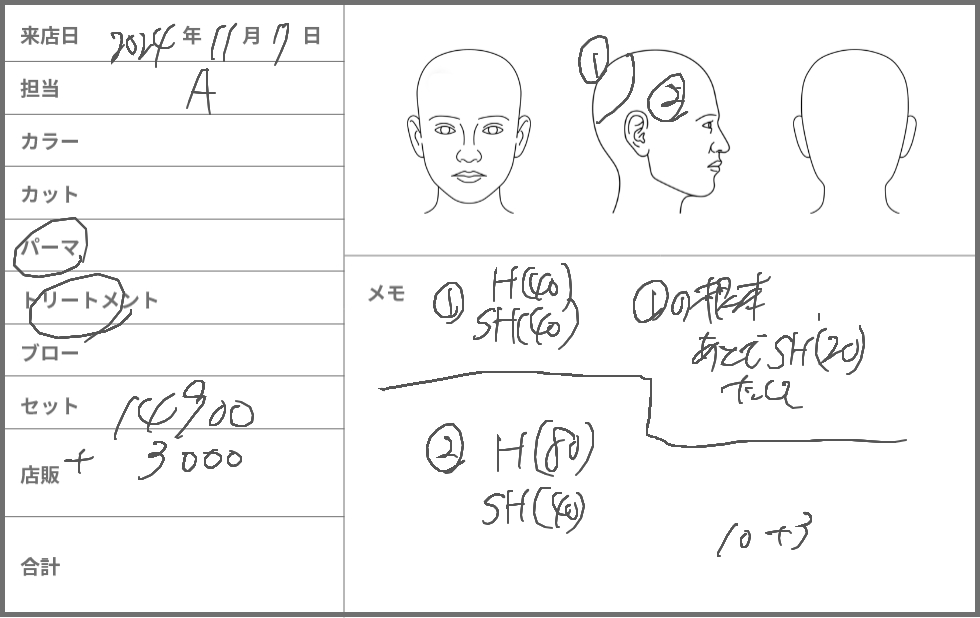 来店日 2024年11月7日
担当 A
カラー
カット
パーマ
トリートメント
ブロー
セット 14900
店販 + 3000
合計
① ②
メモ
① H(40)
SH(40)
①の根本
あとで SH(20)
② H(80)
SH(40)
10+3